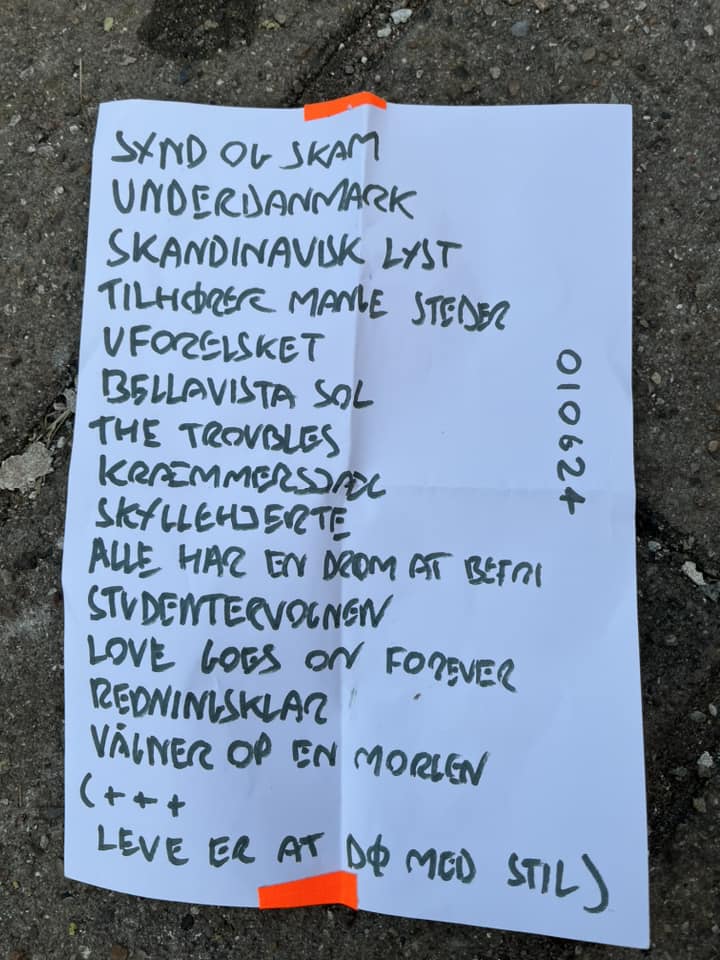 SYND OG SKAM
UNDERDANMARK
SKANDINAVISK LYST
TILHØRER MANGE STEDER
UFORELSKET
BELLAVISTA SOL
THE TROUBLES
KRÆMMERSJÆL
SKYLLEHJERTE
ALLE HAR EN DRØM AT BEFRI
STUDENTERVOGNEN
LOVE GOES ON FOREVER
REDNINGSKLAR
VÅGNER OP EN MORGEN
(+++
LEVE ER AT DØ MED STIL)
010624